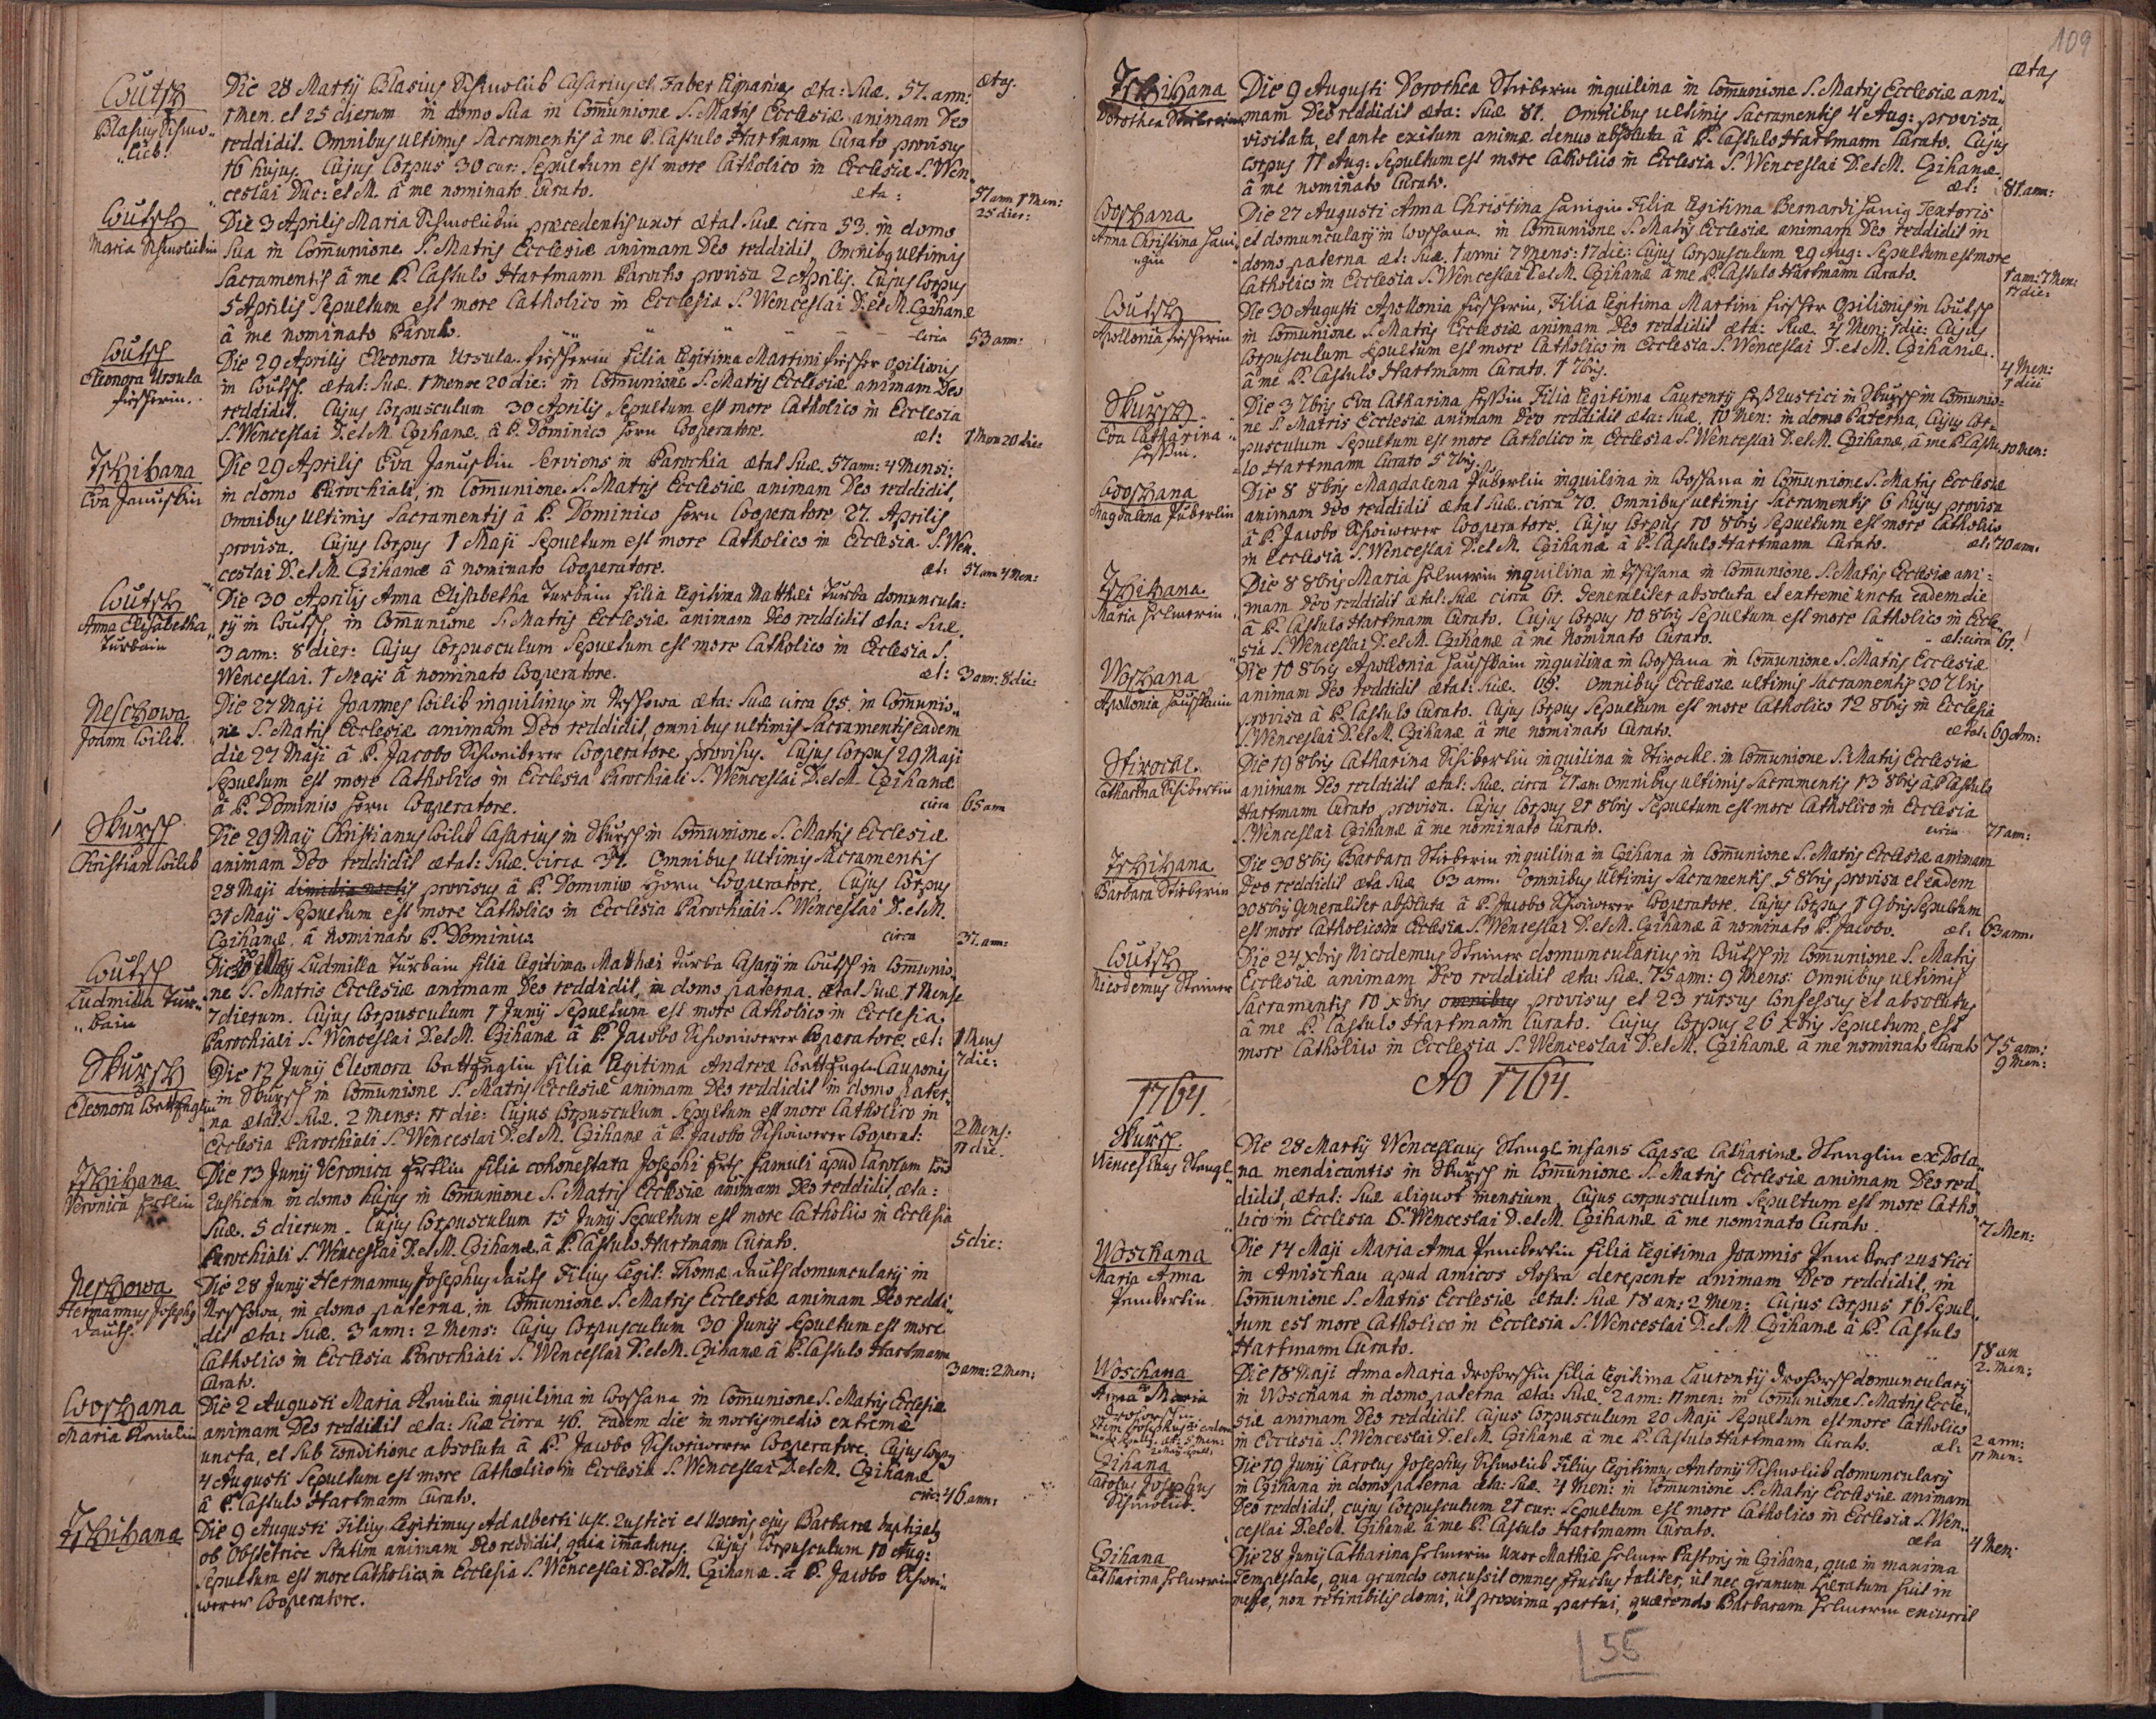 ætas.
Coutsch
Blasius Schwo-
lieb.
Die 28 Martÿ Blasius Schwolieb Casarius et Faber lignarius æta: Suæ. 57. ann:
1 Men. et 25 dierum in domo Sua in Comunione S. Matris Ecclesiæ animam Deo
reddidit. Omnibus ultimis Sacramentis â me P. Castulo Hartmann Curato provisus
16 hujus. Cujus Corpus 30 cur: Sepultum est more Catholico in Ecclesia S. Wen
ceslai Duc: et M. â me nominato Curato. æta: 57 ann 1 Men:
25 dier:
Coutsch
Maria Schwoliebin
Die 3 Aprilis Maria Schwoliebin præcedentis uxor ætat Suæ circa 53. in domo
Sua in Comunione S. Matris Ecclesiæ animam Deo reddidit, Omnibus ultimis
Sacramentis â me P. Castulo Hartmann Parocho provisa 2 Aprilis. Cujus Corpus
5 Aprilis Sepultum est more Catholico in Ecclesia S. Wenceslai D. et M. Czihanæ
â me nominato Parocho. circa 53 ann:
Coutsch
Eleonora Ursula
fischerin.
Die 29 Aprilis Eleonora Ursula fischerin filia legitima Martini fischer opilionis
in Coutsch. ætat: Suæ. 1 Mense 20 die: in Comunione S. Matris Ecclesiæ animam Deo
reddidit. Cujus Corpusculum 30 Aprilis Sepultum est more Catholico in Ecclesia
S. Wenceslai D. et M. Czihanæ, â P. Dominico horn Cooperatore. æt: 1 Men 20 die:
Tschihana
Eva Januskin
Die 29 Aprilis Eva Januskin Serviens in Parochia ætat Suæ. 57 ann: 4 Mensi:
in domo Parochiali, in Comunione S. Matris Ecclesiæ animam Deo reddidit,
omnibus Ultimis Sacramentis â P. Dominico horn Cooperatore 27. Aprilis
provisa. Cujus Corpus 1 Maji Sepultum est more Catholico in Ecclesia S. Wen.
ceslai D. et M. Czihanæ â nominato Cooperatore. æt: 57 ann 4 Men:
Coutsch
Anna Elisabetha
Turbain
Die 30 Aprilis Anna Elisabetha Turbain filia legitima Matthæi Turba domuncula:
rÿ in Coutsch, in Comunione S. Matris Ecclesiæ animam Deo reddidit æta: Suæ.
3 ann: 8 dier: Cujus Corpusculum Sepultum est more Catholico in Ecclesia S.
Wenceslai. 1 Maji â nominato Cooperatore. æt: 3 ann: 8 die:
Neschowa
Joann Coilib.
Die 27 Maji Joannes Coilib inquilinus in Neschowa æta: Suæ circa 65. in Comunio
ne S. Matris Ecclesiæ animam Deo reddidit, omnibus ultimis Sacramentis eadem
die 27 Maji â P. Jacobo Schweiberer Cooperatore provisus. Cujus Corpus 29 Maji
Sepultum est more Catholico in Ecclesia Parochiali S. Wenceslai D. et M. Czihanæ
â P. Dominico horn Cooperatore. circa 65 ann
Skursch
Christian Coilib
Die 29 Maÿ Christianus Coilib Casarius in Skursch in Comunione S. Matris Ecclesiæ
animam Deo reddidit ætat: Suæ. circa 37. Omnibus Ultimis Sacramentis
28 Maji dimidia noctis provisus â P. Dominico Horn Cooperatore. Cujus Corpus
31 Maÿ Sepultum est more Catholico in Ecclesia Parochiali S. Wenceslai D. et M.
Czihanæ, â Nominato P. Dominico. circa 37. ann:
Coutsch
Ludmilla Tur-
bain
Die Maÿ Ludmilla Turbain filia legitima Matthæi Turba Casarÿ in Coutsch in Comunio
ne S. Matris Ecclesiæ animam Deo reddidit, in domo paterna. ætat Suæ 1 Mense
7 dierum. Cujus Corpusculum 1 Junÿ Sepultum est more Catholico in Ecclesia
Parochiali S. Wenceslai D. et M. Czihanæ â P. Jacobo Schweiwerer Cooperatore. æt: 1 Mens
7 die:
Skursch
Eleonora
Die 12 Junÿ Eleonora filia legitima Andreæ Cauponis
in Skursch in Comunione S. Matris Ecclesiæ animam Deo reddidit in domo pater-
na ætat: Suæ. 2 Mens: 11 die: Cujus Corpusculum Sepultum est more Catholico in
Ecclesia Parochiali S. Wenceslai D. et M. Czihanæ â P. Jacobo Schweiwerer Cooperat: 2 Mens:
11 die.
Tschihana
Veronica
Die 13 Junÿ Veronica filia cohonestata Josephi famuli apud Carolum
rusticum in domo hujus in Comunione S. Matris Ecclesiæ animam Deo reddidit, æta:
Suæ. 5 dierum. Cujus Corpusculum 15 Junÿ Sepultum est more Catholico in Ecclesia
Parochiali S. Wenceslai D. et M. Czihanæ. â P. Castulo Hartmann Curato. 5 die:
Neschowa
Hermannus Josephus
Dauth.
Die 28 Junÿ Hermannus Josephus Dauth Filius Legit: Thomæ Dauth domuncularÿ in
Neschowa, in domo paterna, in Comunione S. Matris Ecclesiæ animam Deo reddi
dit æta: Suæ. 3 ann: 2 Mens: Cujus Corpusculum 30 Junÿ Sepultum est more
Catholico in Ecclesia Parochiali S. Wenceslai D. et M. Czihanæ â P. Castulo Hartmann
Curato. 3 ann: 2 Men:
Woschana
Maria
Die 2 Augusti Maria inquilina in Woschana in Comunione S. Matris Ecclesiæ
animam Deo reddidit æta: Suæ circa 46. eadem die in noctis medio extreme
uncta, et Sub conditione absoluta â P. Jacobo Schweiwerer Cooperatore. Cujus Corpus
4 Augusti Sepultum est more Catholico in Ecclesia S. Wenceslai D. et M. Czihanæ
â P. Castulo Hartmann Curato. circ: 46 ann:
Tschihana
Die 9 Augusti Filius Legitimus Adalberti rustici et Uxoris ejus Barbaræ baptizatus
ob Obstetrice Statim animam Deo reddidit, quia imaturus. Cujus Corpusculum 10 Aug:
Sepultum est more Catholico in Ecclesia S. Wenceslai D. et M. Czihanæ. â P. Jacobo Schwei-
werer Cooperatore.
109
ætas
Tschihana
Dorothea Stieberin
Die 9 Augusti Dorothea Stieberin inquilina in Comunione S. Matris Ecclesiæ ani-
mam Deo reddidit æta: Suæ 81. Omnibus ultimis Sacramentis 4 Aug: provisa
visitata, et ante exitum animæ denuo absoluta â P. Castulo Hartmann Curato. Cujus
Corpus 11 Aug: Sepultum est more Catholico in Ecclesia S. Wenceslai D. et M. Czihanæ.
â me nominato Curato. æt: 81 ann:
Woschana
Anna Christina Hani
gin
Die 27 Augusti Anna Christina Hanigin Filia legitima Bernardi Hanig Textoris
et domuncularÿ in Woschana. in Comunione S. Matris Ecclesiæ animam Deo reddidit in
domo paterna æt: Suæ. 1 anni 7 Mens: 17 die: Cujus Corpusculum 29 Aug: Sepultum est more
Catholico in Ecclesia S. Wenceslai D. et M. Czihanæ â me P. Castulo Hartmann Curato. 1 ann: 7 Men:
17 die:
Coutsch
Apollonia fischerin
Die 30 Augusti Apollonia fischerin, Filia legitima Martini fischer Opilionis in Coutsch
in Comunione S. Matris Ecclesiæ animam Deo reddidit æta: Suæ. 4 Men: 1 die: Cujus
Corpusculum Sepultum est more Catholico in Ecclesia S. Wenceslai D. et M. Czihanæ.
â me P. Castulo Hartmann Curato. 1 7bris. 4 Men:
1 diei
Skursch
Eva Catharina
Die 3 7bris Eva Catharina Filia legitima Laurentÿ Rustici in Skursch in Comunio-
ne S. Matris Ecclesiæ animam Deo reddidit æta: Suæ. 10 Men: in domo Paterna, Cujus Cor-
pusculum Sepultum est more Catholico in Ecclesia S. Wenceslai D. et M. Czihanæ, â me P. Castu
lo Hartmann Curato 5 7bris. 10 Men:
Woschana
Magdalena Puberlin
Die 8 8bris Magdalena Puberlin inquilina in Woschana in Comunione S. Matris Ecclesiæ
animam Deo reddidit ætat Suæ. circa 70. Omnibus ultimis Sacramentis 6 hujus provisa
â P. Jacobo Schweiwerer Cooperatore. Cujus Corpus 10 8bris Sepultum est more Catholico
in Ecclesia S. Wenceslai D. et M. Czihanæ â P. Castulo Hartmann Curato. æt: 70 ann.
Tschihana.
Maria Helmerin
Die 8 8bris Maria Helmerin inquilina in Tschihana in Comunione S. Matris Ecclesiæ ani:
mam Deo reddidit ætat: Suæ circa 61. Generaliter absoluta et extreme uncta eadem die
â P. Castulo Hartmann Curato. Cujus Corpus 10 8bris Sepultum est more Catholico in Eccle
sia S. Wenceslai D. et M. Czihanæ â me Nominato Curato. æt: circa 61.
Woschana
Apollonia
Die 10 8bris Apollonia inquilina in Woschana in Comunione S. Matris Ecclesiæ
animam Deo reddidit ætat: Suæ. 69. Omnibus Ecclesiæ ultimis Sacramentis 30 7bris
provisa â P. Castulo Curato. Cujus Corpus Sepultum est more Catholico 12 8bris in Ecclesia
S. Wenceslai D. et M. Czihanæ â me nominato Curato. ætat: 69 Ann:
Stirockl.
Catharina Schibertin
Die 19 8bris Catharina Schibertin inquilina in Stirockl. in Comunione S. Matris Ecclesiæ
animam Deo reddidit ætat: Suæ. circa 71 ann Omnibus ultimis Sacramentis 13 8bris â P. Castulo
Hartmann Curato provisa. Cujus Corpus 21 8bris Sepultum est more Catholico in Ecclesia
S. Wenceslai Czihanæ â me nominato Curato. circa 71 ann:
Tschihana
Barbara Stieberin
Die 30 8bris Barbara Stieberin inquilina in Czihana in Comunione S. Matris Ecclesiæ animam
Deo reddidit æta Suæ 63 ann. Omnibus Ultimis Sacramentis 5 8bris provisa et eadem
30 8bris Generaliter absoluta â P. Jacobo Schweiwerer Cooperatore. Cujus Corpus 1 9bris Sepultum
est more Catholico in Ecclesia S. Wenceslai D. et M. Czihanæ â nominato P. Jacobo. æt: 63 ann.
Coutsch
Nicodemus Steiner
Die 24 xbris Nicodemus Steiner domuncularius in Coutsch in Comunione S. Matris
Ecclesiæ animam Deo reddidit æta: Suæ. 75 ann: 9 Mens: Omnibus ultimis
Sacramentis 10 xbris omnibus provisus et 23 rursus Confessus et absolutus
â me P. Castulo Hartmann Curato. Cujus Corpus 26 xbris Sepultum est
more Catholico in Ecclesia S. Wenceslai D. et M. Czihanæ â me nominato Curato 75 ann:
9 Men:
1764.
Ao 1764.
Skursch.
Wenceslaus Stengl
Die 28 Martÿ Wenceslaus Stengl infans Lapsæ Catharinæ Stenglin ex Dola
na mendicantis in Skursch in Comunione S. Matris Ecclesiæ animam Deo red
didit, ætat: Suæ aliquot mensium, Cujus corpusculum Sepultum est more Catho
lico in Ecclesia S. Wenceslai D. et M. Czihanæ â me nominato Curato. 7 Men:
Woschana
Maria Anna
Pembertin
Die 14 Maji Maria Anna Pembertin filia legitima Joannis Pembert rustici
in Anischau apud amicos derepente animam Deo reddidit, in
Comunione S. Matris Ecclesiæ ætat: Suæ 18 an: 2 Men: Cujus Corpus 16 Sepul
tum est more Catholico in Ecclesia S. Wenceslai D. et M Czihanæ â P. Castulo
Hartmann Curato. 18 an
2. Men:
Woschana
Anna Maria
Die 18 Maji Anna Maria filia legitima Laurentÿ domuncularÿ
in Woschana in domo paterna æta: Suæ. 2 ann: 11 men: in Comunione S. Matris Eccle-
siæ animam Deo reddidit. Cujus Corpusculum 20 Maji Sepultum est more Catholico
in Ecclesia S. Wenceslai D. et M. Czihanæ â me P. Castulo Hartmann Curato. æt: 2 ann:
11 Men:
Czihana
Carolus Josephus
Schwolieb.
Die 19 Junÿ Carolus Josephus Schwolieb Filius legitimus Antonÿ Schwolieb domuncularÿ
in Czihana in domo paterna æta: Suæ. 4 Men: in Comunione S. Matris Ecclesiæ animam
Deo reddidit, cujus Corpusculum 21 cur: Sepultum est more Catholico in Ecclesia S. Wen-
ceslai D. et M. Czihanæ â me P. Castulo Hartmann Curato. æta 4 Men:
Czihana
Catharina Helmerin
Die 28 Junÿ Catharina Helmerin Uxor Mathiæ Helmer Pastoris in Czihana, quæ in maxima
Tempestate, qua grando concussit omnes fructus taliter, ut nec granum speratum fuit in
messe, non retinibilis domi, ut proxima partui, quærendo Barbaram Helmerin excurrit
55